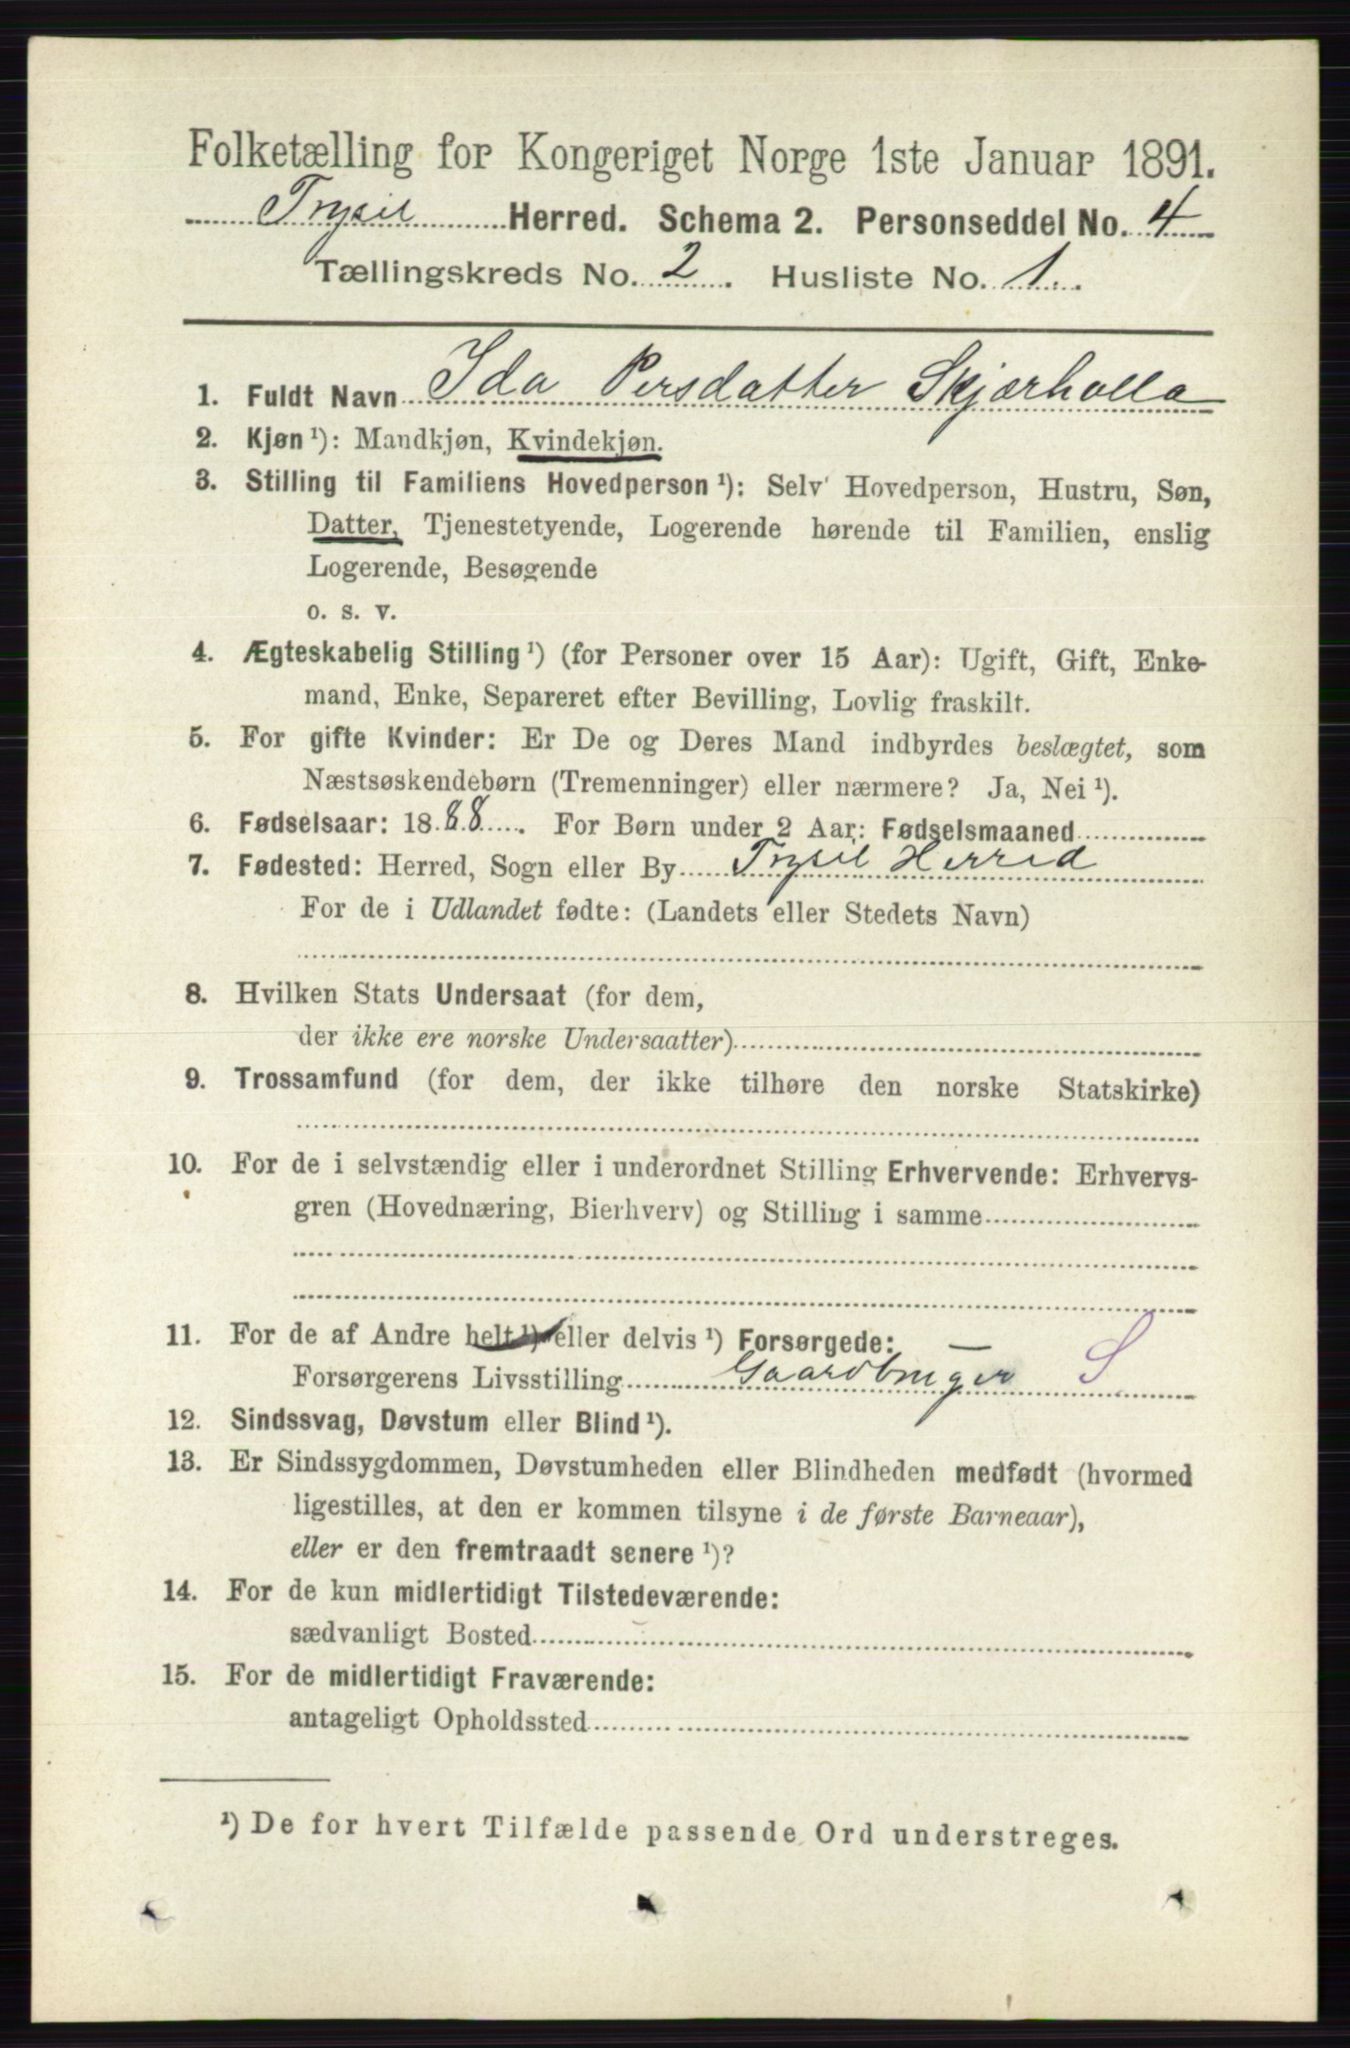 Folketælling for Kongeriget Norge 1ste Januar 1891.
Trysil Herred. Schema 2. Personseddel No. 4
Tællingskreds No. 2. Husliste No. 1.
1. Fuldt Navn Ida Persdatter Skjærholla
2. Kjøn ¹): Mandkjøn, Kvindekjøn.
3. Stilling til Familiens Hovedperson ¹): Selv Hovedperson, Hustru, Søn,
Datter, Tjenestetyende, Logerende hørende til Familien, enslig
Logerende, Besøgende
o. s. v.
4. Ægteskabelig Stilling ¹) (for Personer over 15 Aar): Ugift, Gift, Enke-
mand, Enke, Separeret efter Bevilling, Lovlig fraskilt.
5. For gifte Kvinder: Er De og Deres Mand indbyrdes beslægtet, som
Næstsøskendebørn (Tremenninger) eller nærmere? Ja, Nei ¹).
6. Fødselsaar: 1888. For Børn under 2 Aar: Fødselsmaaned
7. Fødested: Herred, Sogn eller By Trysil Herred
For de i Udlandet fødte: (Landets eller Stedets Navn)
8. Hvilken Stats Undersaat (for dem,
der ikke ere norske Undersaatter)
9. Trossamfund (for dem, der ikke tilhøre den norske Statskirke)
10. For de i selvstændig eller i underordnet Stilling Erhvervende: Erhvervs-
gren (Hovednæring, Bierhverv) og Stilling i samme
11. For de af Andre helt ¹) eller delvis ¹) Forsørgede:
Forsørgerens Livsstilling Gaardbruger S
12. Sindssvag, Døvstum eller Blind ¹).
13. Er Sindssygdommen, Døvstumheden eller Blindheden medfødt (hvormed
ligestilles, at den er kommen tilsyne i de første Barneaar),
eller er den fremtraadt senere ¹)?
14. For de kun midlertidigt Tilstedeværende:
sædvanligt Bosted
15. For de midlertidigt Fraværende:
antageligt Opholdssted
¹) De for hvert Tilfælde passende Ord understreges.